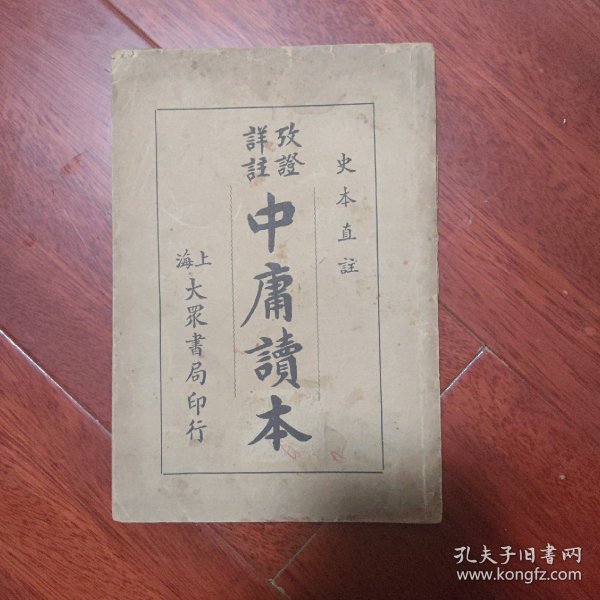 史本直註
攷證
詳註
中庸讀本
上海
大眾書局印行
孔夫子旧书网
www.kongfz.com